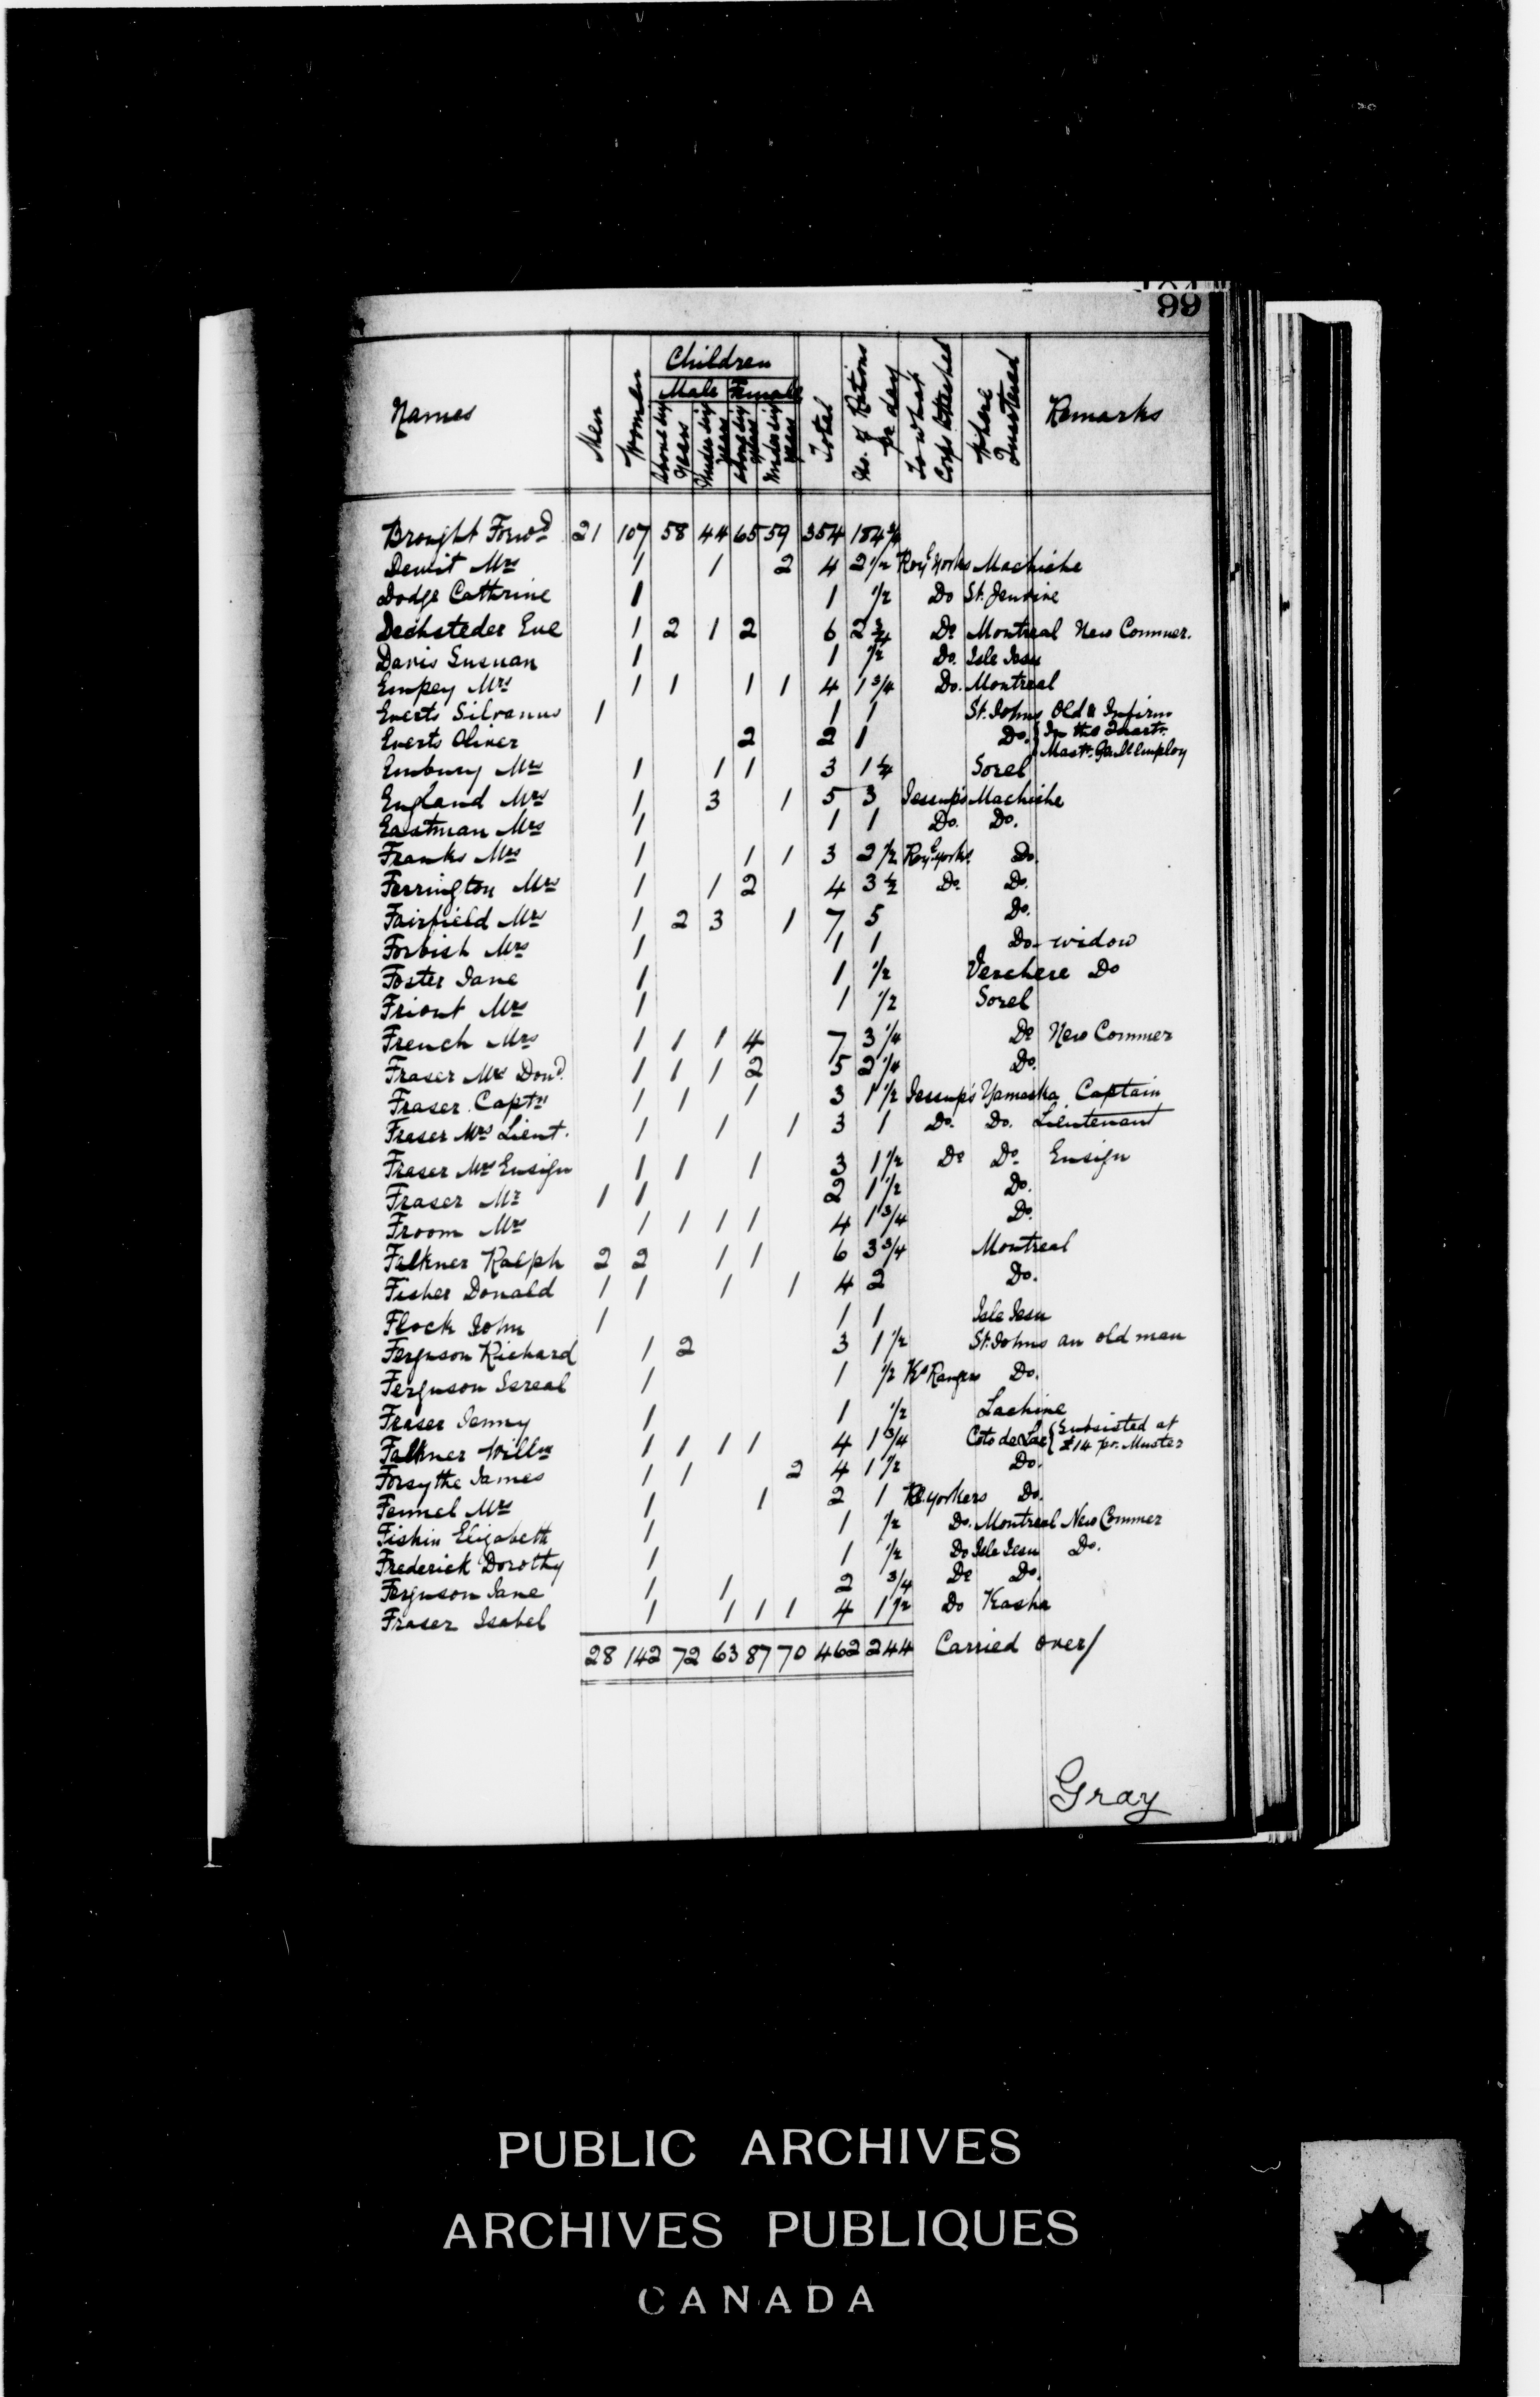 99
Names Men Women Children Male Above Six Years Under Six Years Female Above Six Years Under Six Years Total No. of Rations pr day To what Corps Attached Where Quartered Remarks
Brought Forwd 21 107 58 44 65 59 354 184 3/4
Dewit Mrs 1 1 2 4 2 1/2 Royl Yorks Machiche
Dodge Cathrine 1 1 1/2 Do St.
Dechsteder Eve 1 2 1 2 6 2 3/4 Do Montreal New Commer.
Davis Susnan 1 1 1/2 Do. Isle Jesu
Empey Mrs 1 1 1 1 4 1 3/4 Do. Montreal
Everts Silvanus 1 1 1 St. Johns Old & Infirm
Everts Oliver 2 2 1 Do. { In the Quartr. Mastr. Genll employ
Embury Mrs 1 1 1 3 1 1/4 Sorel
England Mrs 1 3 1 5 3 Jessup's Machiche
Eastman Mrs 1 1 1 Do. Do.
Franks Mrs 1 1 1 3 2 1/2 Royl Yorks. Do.
Ferrington Mrs 1 1 2 4 3 1/2 Do. Do.
Fairfield Mrs 1 2 3 1 7 5 Do.
Forbish Mrs 1 1 1 Do. widow
Foster Jane 1 1 1/2 Verchere Do
Friont Mrs 1 1 1/2 Sorel
French Mrs 1 1 1 4 7 3 1/4 Do New Commer
Fraser Mrs Dond. 1 1 1 2 5 2 1/4 Do.
Fraser Captn 1 1 1 3 1 1/2 Jessup's Yamaska Captain
Fraser Mrs Lieut. 1 1 1 3 1 Do. Do. Lieutenant
Fraser Mrs Ensign 1 1 1 3 1 1/2 Do Do. Ensign
Fraser Mr 1 1 2 1 1/2 Do.
Froom Mrs 1 1 1 1 4 1 3/4 Do.
Falkner Ralph 2 2 1 1 6 3 3/4 Montreal
Fisher Donald 1 1 1 1 4 2 Do.
Flock John 1 1 1 Isle Jesu
Ferguson Richard 1 2 3 1 1/2 St. Johns an old man
Ferguson Isreal 1 1 1/2 Ks Rangers Do.
Fraser Jenny 1 1 1/2 Lachine
Falkner Willm 1 1 1 1 4 1 3/4 Coto de Lac { Subsisted at £14 pr. Muster
Forsythe James 1 1 2 4 1 1/2 Do.
Fennel Mrs 1 1 2 1 Rl. Yorkers Do.
Fishin Elizabeth 1 1 1/2 Do. Montreal New Commer
Frederick Dorothy 1 1 1/2 Do Isle Jesu Do.
Ferguson Jane 1 1 2 3/4 Do Do.
Fraser Isabel 1 1 1 1 4 1 1/2 Do Kasha
28 142 72 63 87 70 462 244 Carried over/
Gray
PUBLIC ARCHIVES
ARCHIVES PUBLIQUES
CANADA